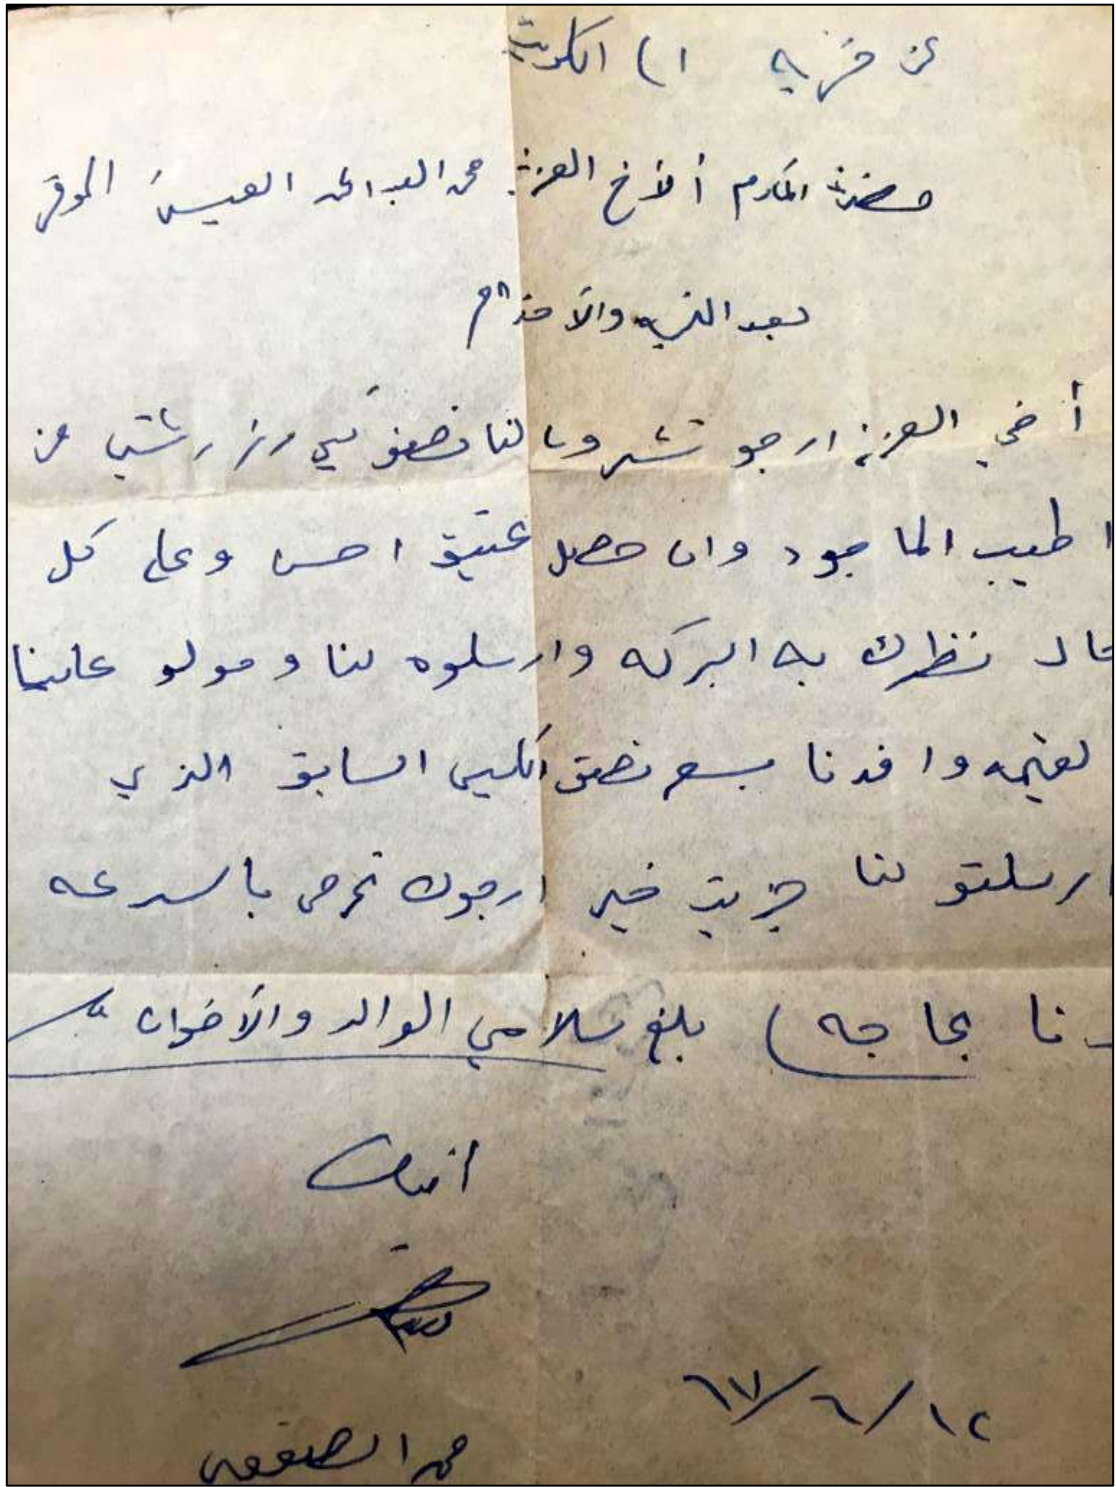 من خزيه الى الكويت
حضرت المكرم ألأخ العزيز محمد العبدالله العيسى الموقر
بعد التحيه والأحترام
أخي العزيز ارجو تشرو لنا نصف كيس رز رشتي من
اطيب الماجود وان حصل عتيق احسن وعلى كل
حال نظرك به البركه وارسلوه لنا وحولو علينا
لقيمه وافدنا بسعر نصف الكيس السابق الذي
ارسلتو لنا جزيت خير ارجوك تحرص بالسرعه
نا بحاجه ) بلغ سلامي الوالد والأخوان
اخيك
١٢/٦/٦٧
محمد